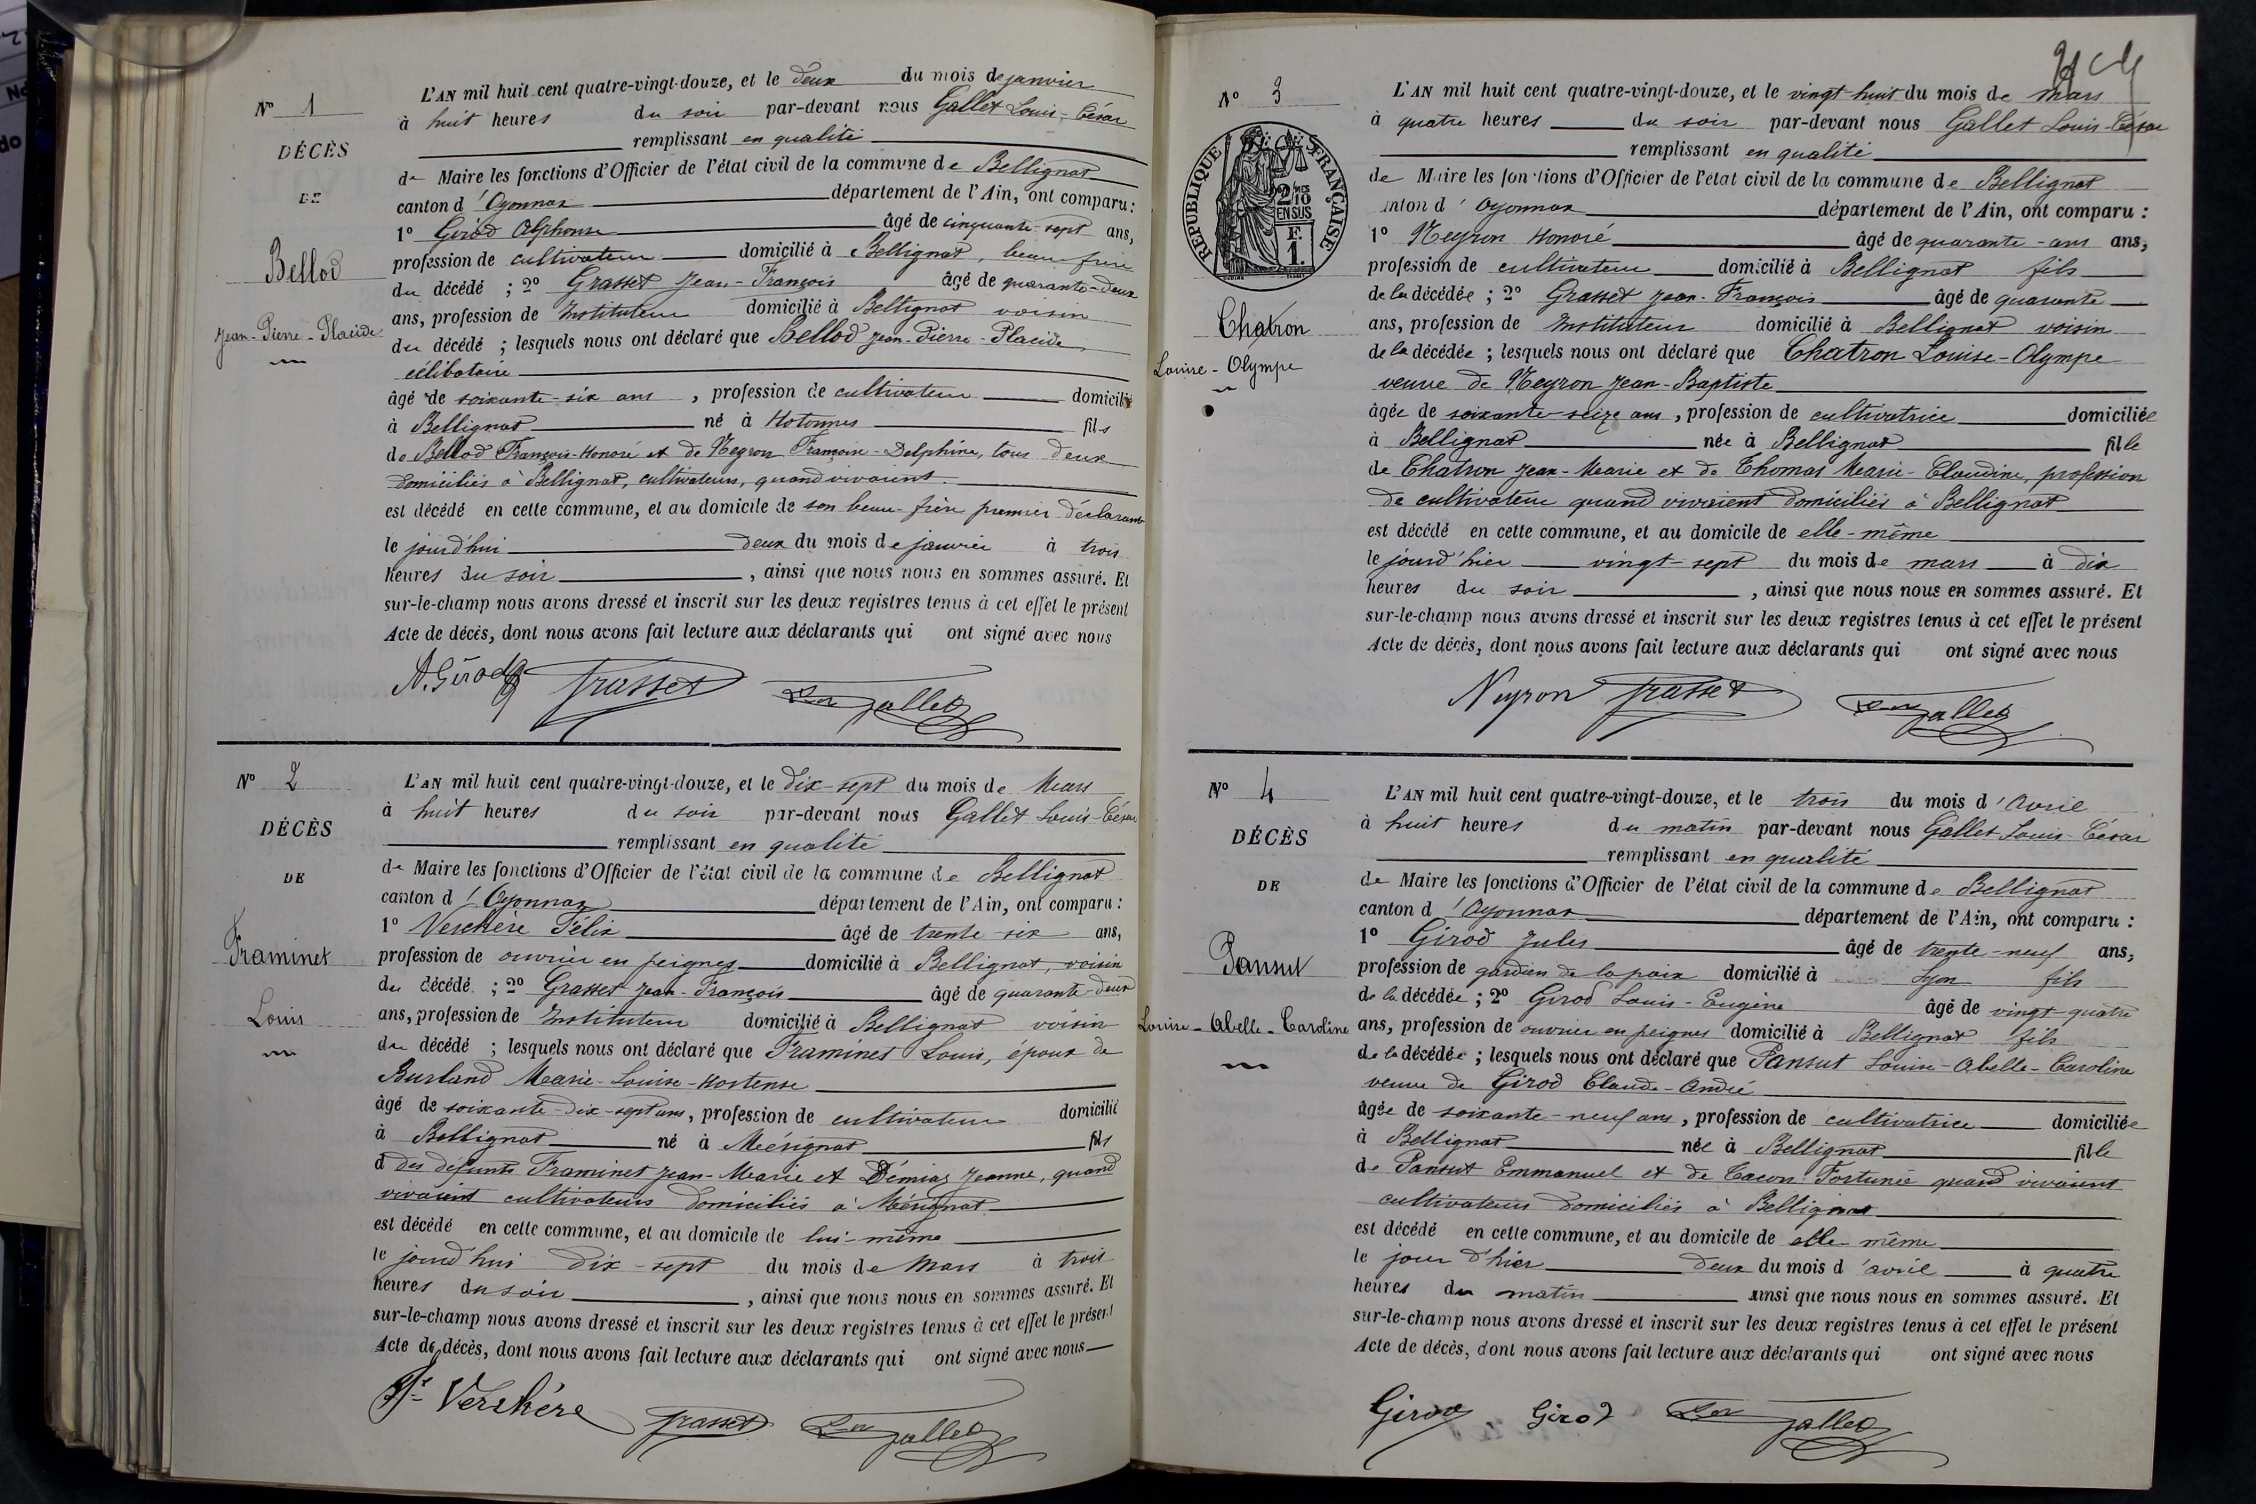 N° 1
DÉCÈS
DE
Bellod
Jean-Pierre-Placide
L'AN mil huit cent quatre-vingt-douze, et le deux du mois de janvier
à huit heures du soir par-devant nous Gallet Louis-César
remplissant en qualité
de Maire les fonctions d'Officier de l'état civil de la commune de Bellignat
canton d'Oyonnax département de l'Ain, ont comparu :
1° Girod Alphonse âgé de cinquante-sept ans,
profession de cultivateur domicilié à Bellignat, beau frère
du décédé ; 2° Grasset Jean-François âgé de quarante-deux
ans, profession de Instituteur domicilié à Bellignat voisin
du décédé ; lesquels nous ont déclaré que Bellod Jean-Pierre-Placide,
célibataire
âgé de soixante-six ans, profession de cultivateur domicilié
à Bellignat né à Hotonnes fils
de Bellod François-Honoré et de Neyron Françoise-Delphine, tous deux
domiciliés à Bellignat, cultivateurs, quand vivaient.
est décédé en cette commune, et au domicile de son beau-frère premier déclarant
le jourd'hui deux du mois de janvier à trois
heures du soir, ainsi que nous nous en sommes assuré. Et
sur-le-champ nous avons dressé et inscrit sur les deux registres tenus à cet effet le présent
Acte de décès, dont nous avons fait lecture aux déclarants qui ont signé avec nous
A. Girod Grasset Gallet
N° 2
DÉCÈS
DE
Framinet
Louis
L'AN mil huit cent quatre-vingt-douze, et le dix-sept du mois de Mars
à huit heures du soir par-devant nous Gallet Louis-César
remplissant en qualité
de Maire les fonctions d'Officier de l'état civil de la commune de Bellignat
canton d'Oyonnax département de l'Ain, ont comparu :
1° Verchère Félix âgé de trente-six ans,
profession de ouvrier en peignes domicilié à Bellignat, voisin
du décédé ; 2° Grasset Jean-François âgé de quarante-deux
ans, profession de Instituteur domicilié à Bellignat voisin
du décédé ; lesquels nous ont déclaré que Framinet Louis, époux de
Burland Marie-Louise-Hortense
âgé de soixante-dix-sept ans, profession de cultivateur domicilié
à Bellignat né à Mérignat fils
d des défunts Framinet Jean-Marie et Démias Jeanne, quand
vivaient cultivateurs domiciliés à Mérignat
est décédé en cette commune, et au domicile de lui-même
le jourd'hui dix-sept du mois de Mars à trois
heures du soir, ainsi que nous nous en sommes assuré. Et
sur-le-champ nous avons dressé et inscrit sur les deux registres tenus à cet effet le présent
Acte de décès, dont nous avons fait lecture aux déclarants qui ont signé avec nous
Verchère Grasset Gallet
N° 3
RÉPUBLIQUE FRANÇAISE
2/10 EN SUS
F. 1.
Chatron
Louise-Olympe
L'AN mil huit cent quatre-vingt-douze, et le vingt huit du mois de mars
à quatre heures du soir par-devant nous Gallet Louis-César
remplissant en qualité
de Maire les fonctions d'Officier de l'état civil de la commune de Bellignat
canton d'Oyonnax département de l'Ain, ont comparu :
1° Neyron Honoré âgé de quarante-ans ans,
profession de cultivateur domicilié à Bellignat fils
de la décédée ; 2° Grasset Jean-François âgé de quarante
ans, profession de Instituteur domicilié à Bellignat voisin
de la décédée ; lesquels nous ont déclaré que Chatron Louise-Olympe
veuve de Neyron Jean-Baptiste
âgée de soixante-seize ans, profession de cultivatrice domiciliée
à Bellignat née à Bellignat fille
de Chatron Jean-Marie et de Thomas Marie-Claudine, profession
de cultivateur quand vivaient domiciliés à Bellignat
est décédé en cette commune, et au domicile de elle-même
le jourd'hier vingt-sept du mois de mars à dix
heures du soir, ainsi que nous nous en sommes assuré. Et
sur-le-champ nous avons dressé et inscrit sur les deux registres tenus à cet effet le présent
Acte de décès, dont nous avons fait lecture aux déclarants qui ont signé avec nous
Neyron Grasset Gallet
N° 4
DÉCÈS
DE
Pansut
Louise-Abelle-Caroline
L'AN mil huit cent quatre-vingt-douze, et le trois du mois d'Avril
à huit heures du matin par-devant nous Gallet Louis-César
remplissant en qualité
de Maire les fonctions d'Officier de l'état civil de la commune de Bellignat
canton d'Oyonnax département de l'Ain, ont comparu :
1° Girod Jules âgé de trente-neuf ans,
profession de gardien de la paix domicilié à Lyon fils
de la décédée ; 2° Girod Louis-Eugène âgé de vingt-quatre
ans, profession de ouvrier en peignes domicilié à Bellignat fils
de la décédée ; lesquels nous ont déclaré que Pansut Louise-Abelle-Caroline
veuve de Girod Claude-André
âgée de soixante-neuf ans, profession de cultivatrice domiciliée
à Bellignat née à Bellignat fille
de Pansut Emmanuel et de Tacon Fortunée quand vivaient
cultivateurs domiciliés à Bellignat
est décédé en cette commune, et au domicile de elle même
le jour d'hier deux du mois d'avril à quatre
heures du matin ainsi que nous nous en sommes assuré. Et
sur-le-champ nous avons dressé et inscrit sur les deux registres tenus à cet effet le présent
Acte de décès, dont nous avons fait lecture aux déclarants qui ont signé avec nous
Girod Girod Gallet